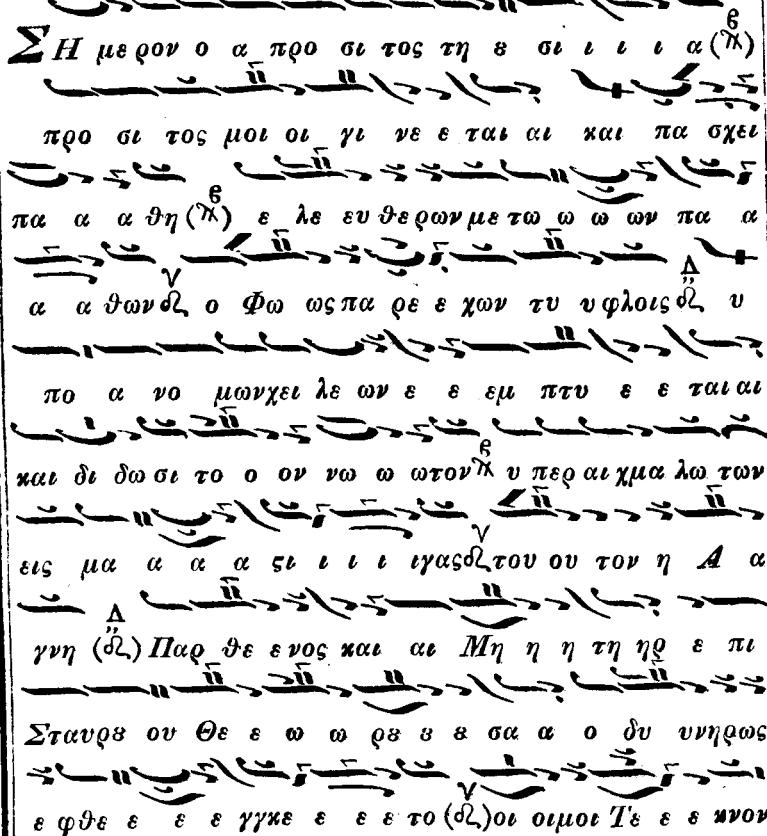 ΣΗ μερον ο α προ σι τος τη ȣ σι ι ι ι α
προ σι τος μοι οι γι νε ε ται αι και πα σχει
πα α α θη ε λε ευ θε ρων με τω ω ω ων πα α
α α θων ο Φω ως πα ρε ε χων τυ υ φλοις υ
πο α νο μων χει λε ων ε ε εμ πτυ ε ε ται αι
και δι δω σι το ο ον νω ω ωτον υ περ αι χμα λω των
εις μα α α α ϛι ι ι ι ιγας του ου τον η Α α
γνη Παρ θε ε νος και αι Μη η η τη ηρ ε πι
Σταυρȣ ου Θε ε ω ω ρȣ ȣ ȣ σα α ο δυ υνηρως
ε φθε ε ε ε γγκε ε ε ε το οι οιμοι Τε ε ε κνον